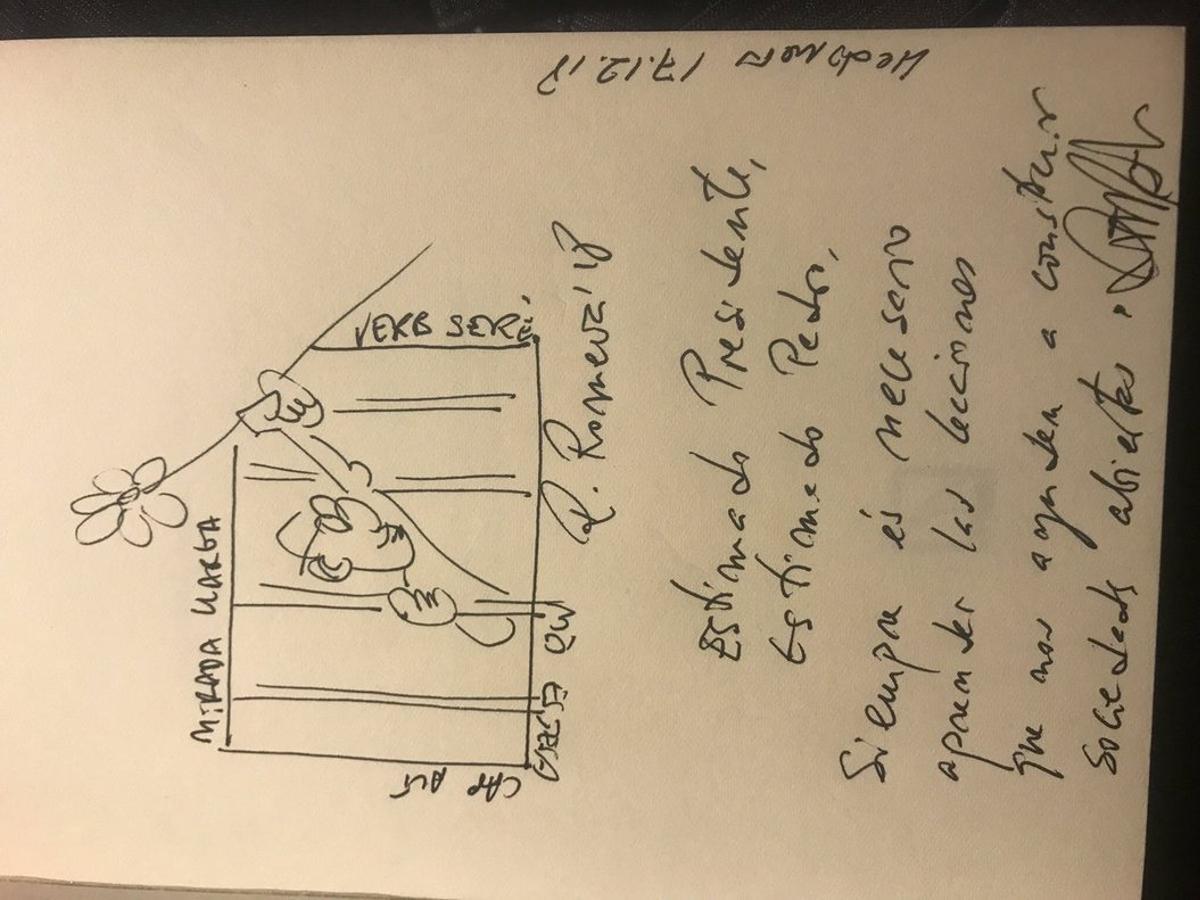 MIRADA LLARGA
CAP ALT
VERB SERÈ
MÀ ESTESA
R. Romeva '18
Estimado Presidente,
Estimado Pedro,
Siempre és necesario
aprender las lecciones
que nos ayuden a construir
sociedades abiertas.
Lledoners 17.12.18